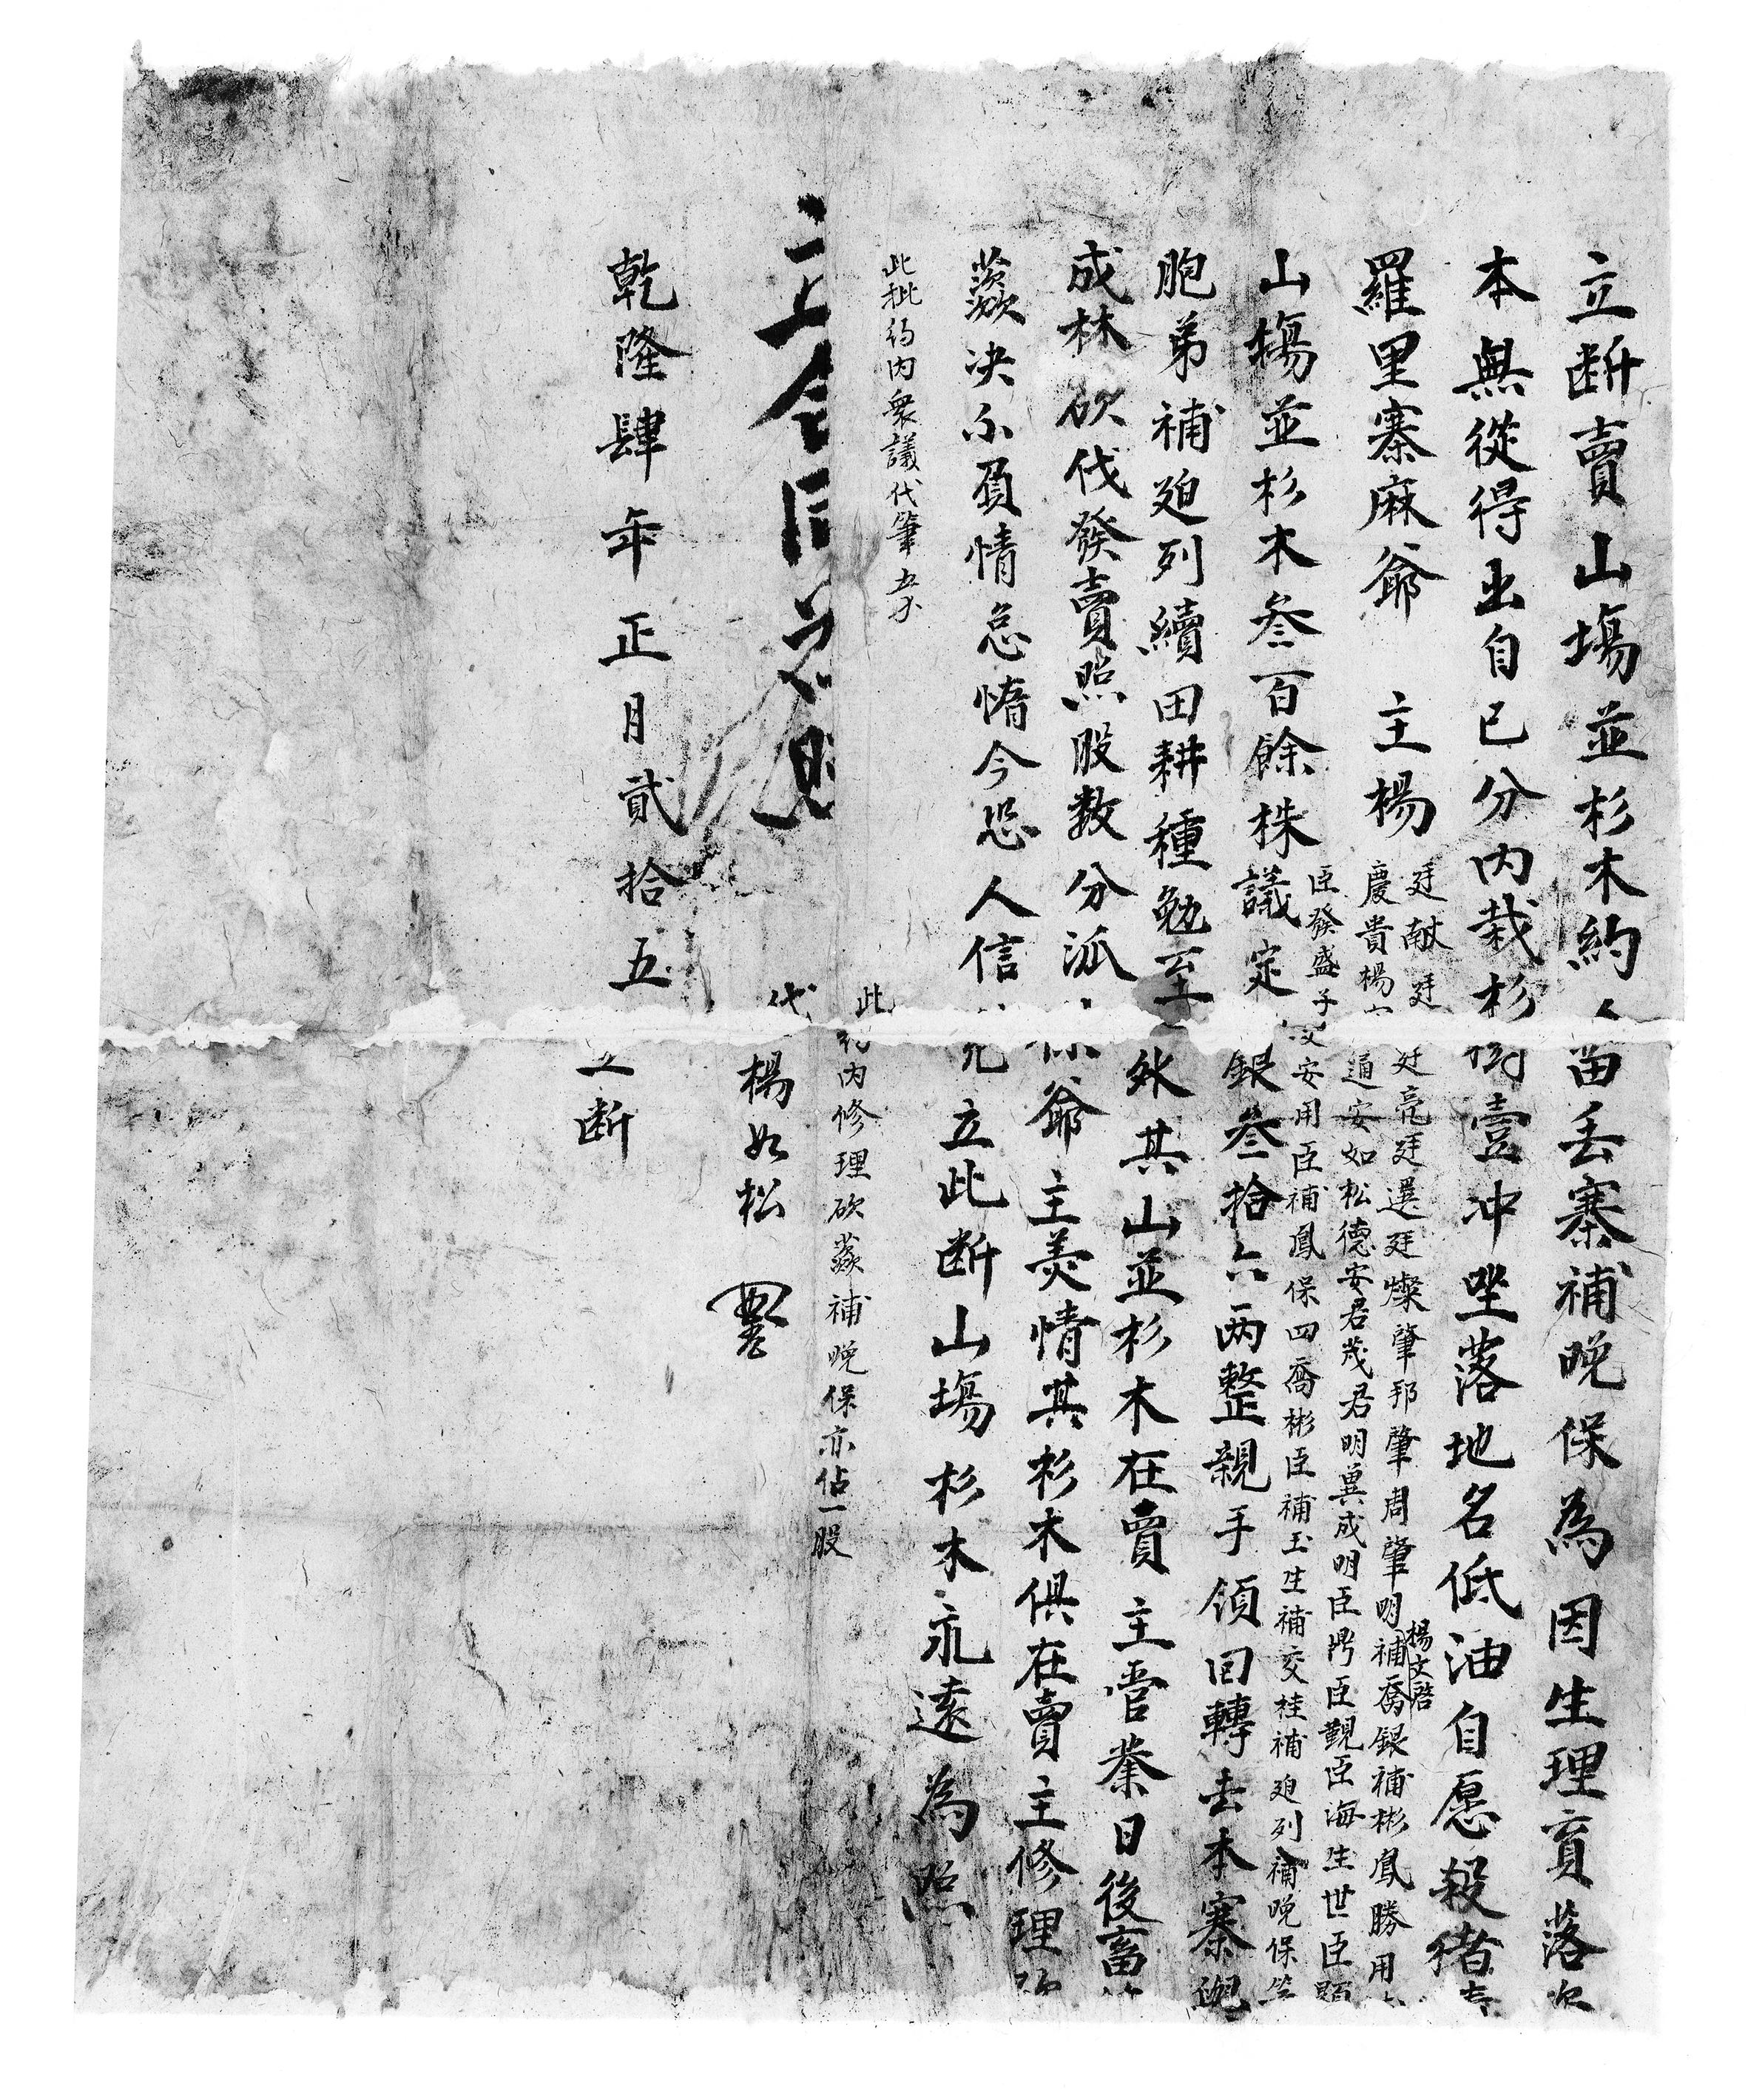 立断賣山塲並杉木約人苗丢寨補晚保為因生理資落欠
本無從得出自已分内栽杉樹壹冲坐落地名低油自愿殺猪
羅里寨麻爺 主楊
廷献廷 廷亮廷選廷燦肇邦肇周肇明補喬銀補彬鳳勝用
楊文啓
慶貴楊 通安如松德安君茂君明異成明臣門臣觀臣海生世臣顕
臣發盛子 安用臣補鳳保四喬彬臣補玉生補交桂補廹列補晚保等
山塲並杉木叁百餘株議定 銀叁拾六两整親手領回轉去本寨
胞弟補廹列續田耕種勉至 外其山並杉木在賣主管業日後畜
成林砍伐發賣照股数分派 爺主羙情其杉木俱在賣主修理
蕨决不負情怠惰今恐人信 凭立此断山塲杉木永遠為照
此批約内衆議代筆
此約内修理砍蕨補晚保亦佔一股
代 楊如松
乾隆肆年正月貳拾五 立断